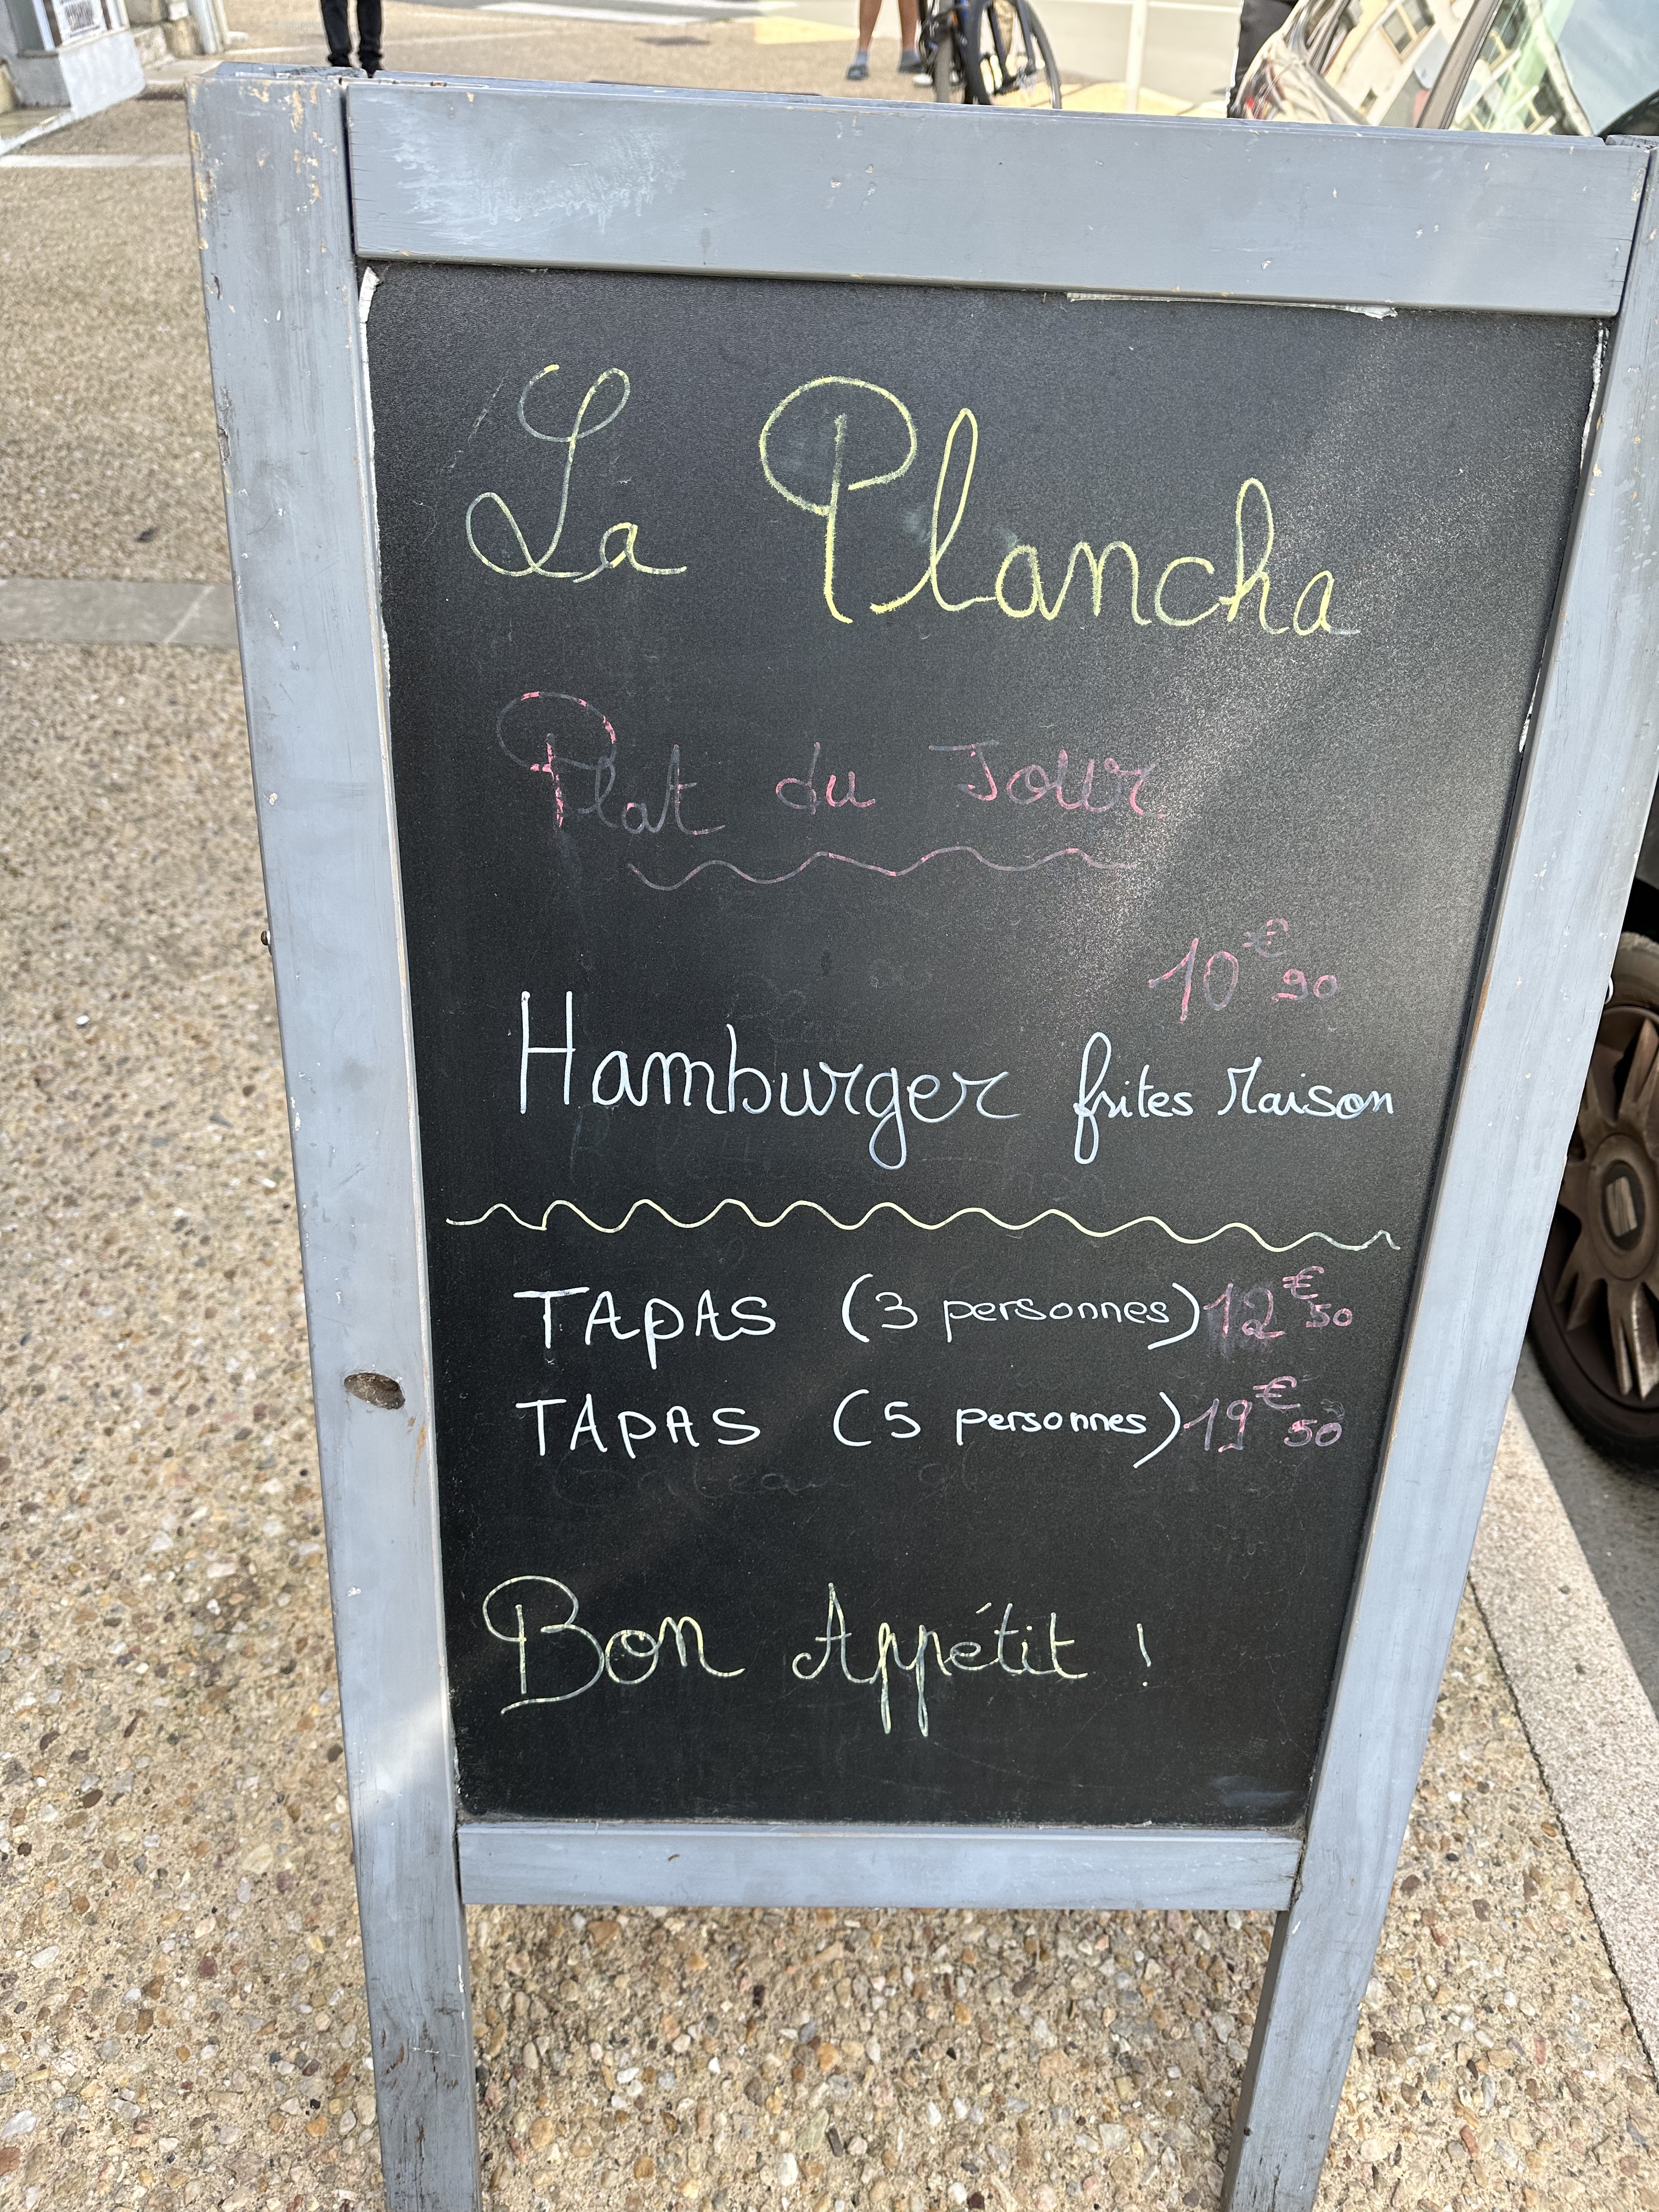 La Plancha
Plat du Jour
10€90
Hamburger frites Maison
TAPAS (3 personnes) 12€50
TAPAS (5 personnes) 19€50
Bon Appétit !